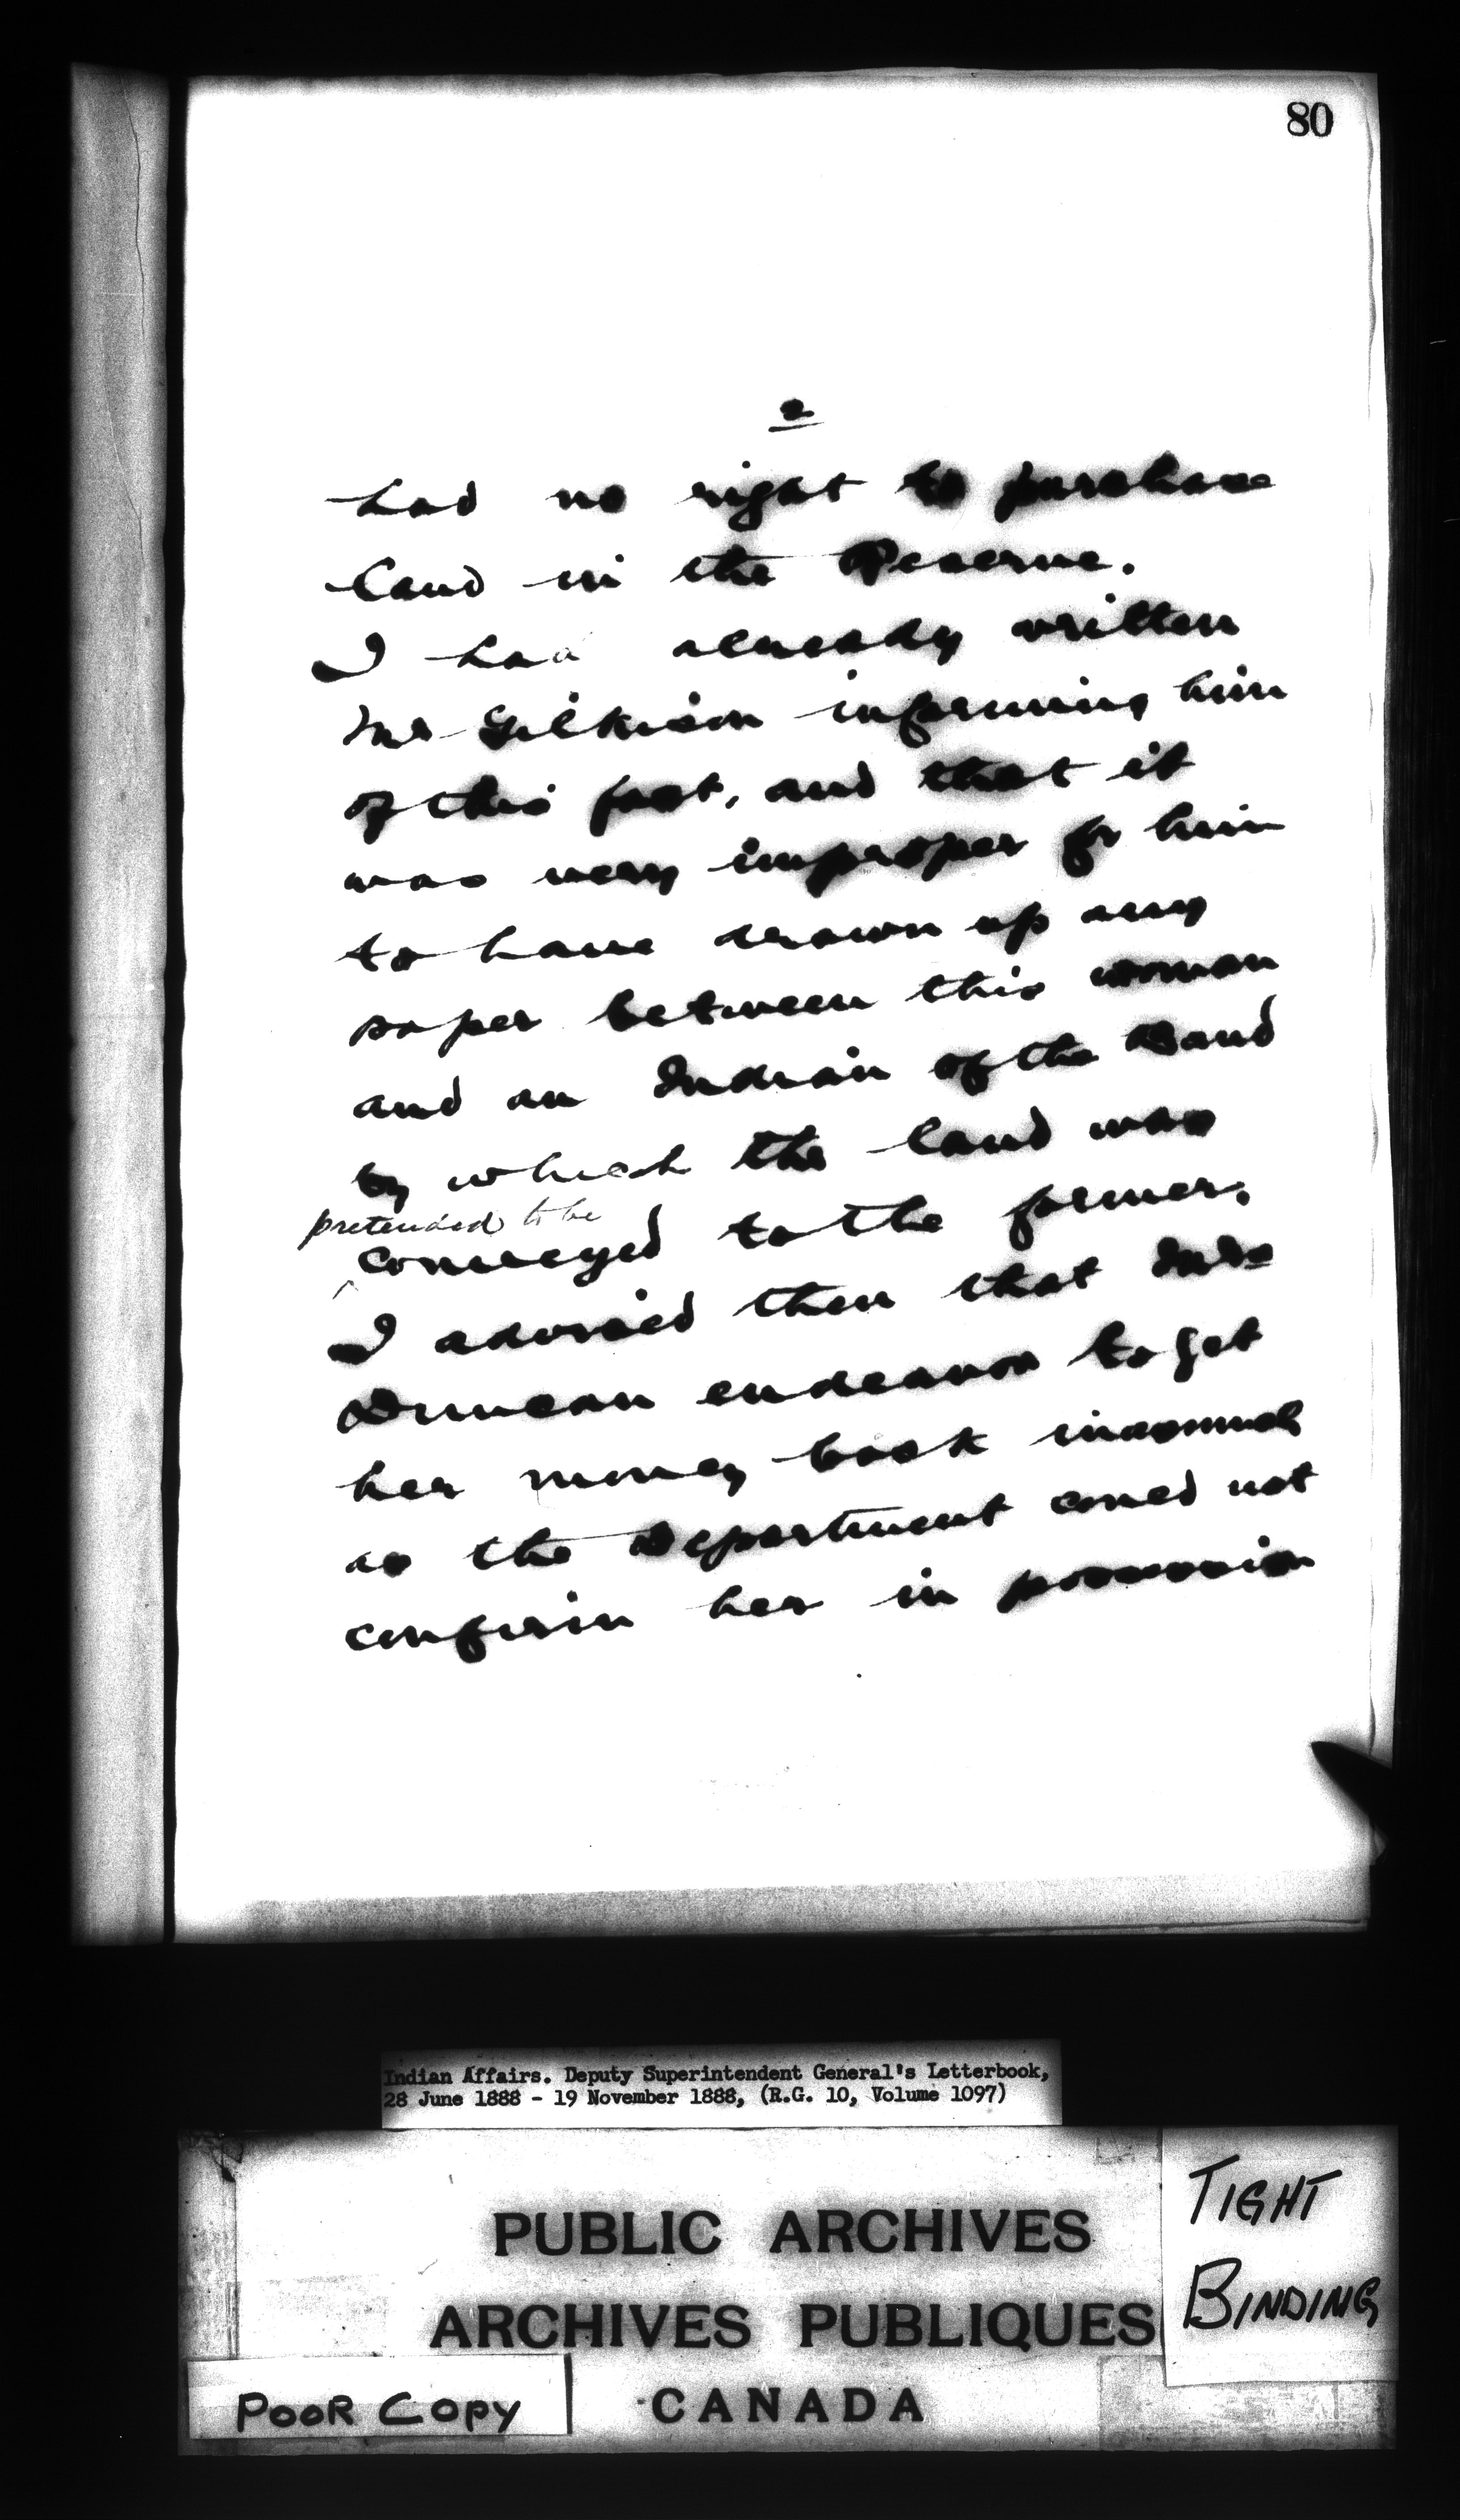 80
2
had no right to purchase
land in the Reserve.
I had already written
Mr Gilkison informing him
of this fact, and that it
was very improper for him
to have drawn up any
paper between this woman
and an Indian of the Band
by which the land was
pretended to be
conveyed to the former.
I advised then that Mrs
Duncan endeavor to get
her money back inasmuch
as the Department could not
confirm her in possession
Indian Affairs. Deputy Superintendent General's Letterbook,
28 June 1888 - 19 November 1888, (R.G. 10, Volume 1097)
PUBLIC ARCHIVES
ARCHIVES PUBLIQUES
CANADA
TIGHT
BINDING
POOR COPY